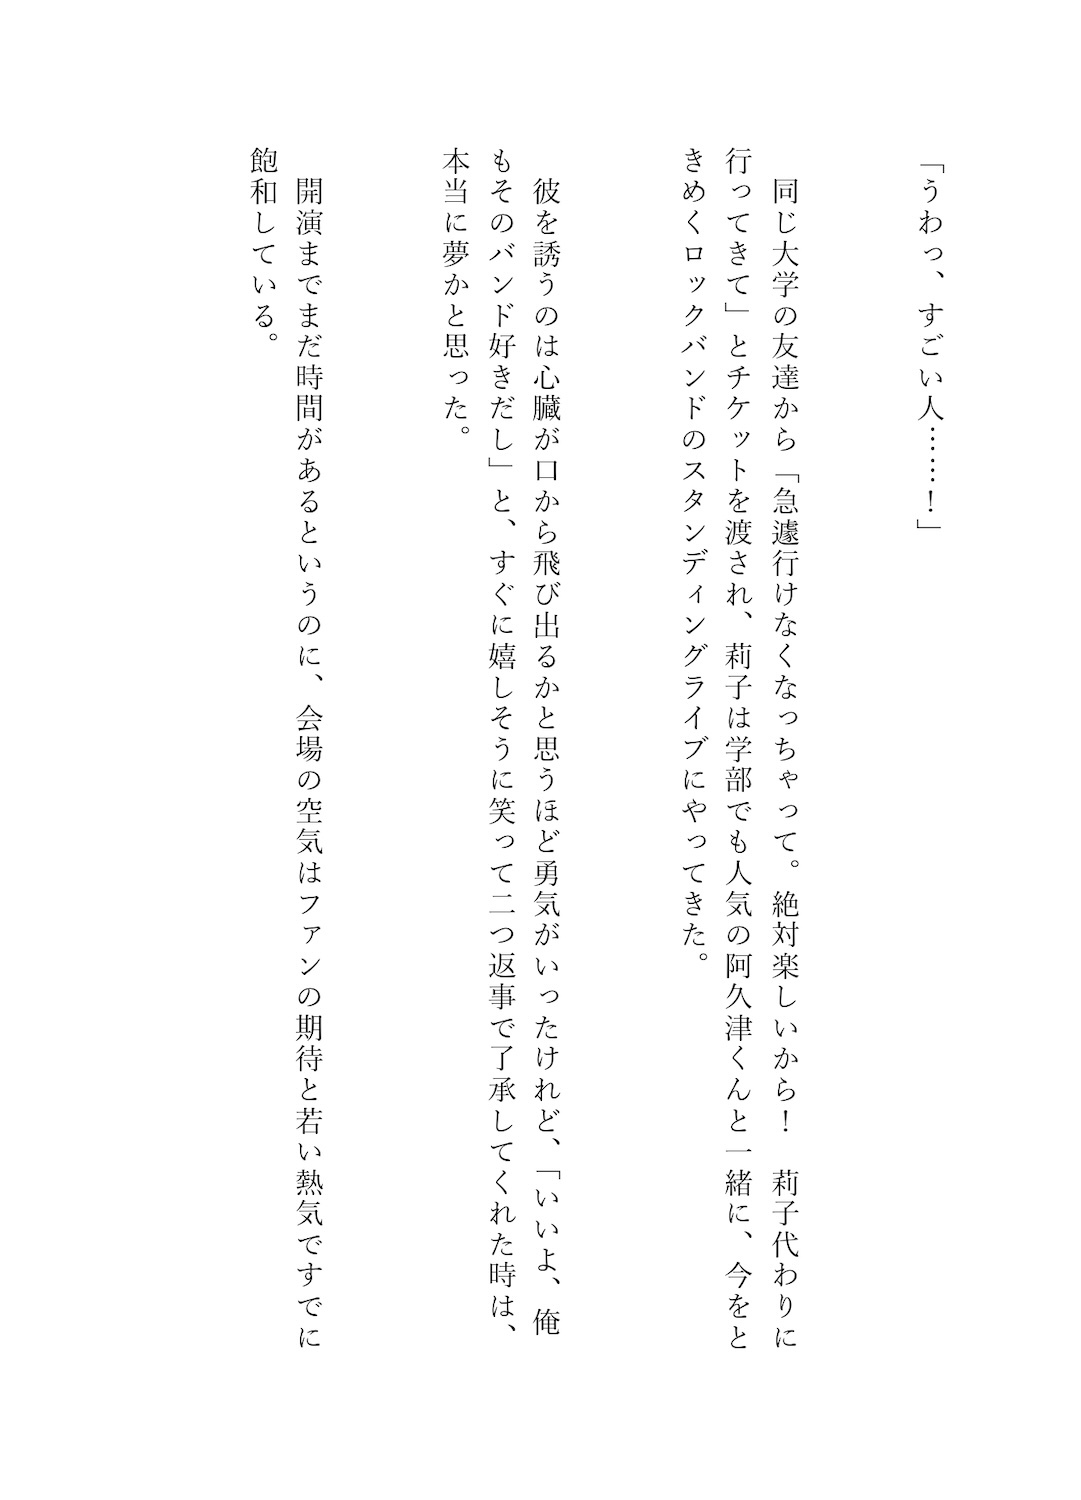 「うわっ、すごい人……！」
　同じ大学の友達から「急遽行けなくなっちゃって。絶対楽しいから！　莉子代わりに
行ってきて」とチケットを渡され、莉子は学部でも人気の阿久津くんと一緒に、今をと
きめくロックバンドのスタンディングライブにやってきた。
　彼を誘うのは心臓が口から飛び出るかと思うほど勇気がいったけれど、「いいよ、俺
もそのバンド好きだし」と、すぐに嬉しそうに笑って二つ返事で了承してくれた時は、
本当に夢かと思った。
　開演までまだ時間があるというのに、会場の空気はファンの期待と若い熱気ですでに
飽和している。